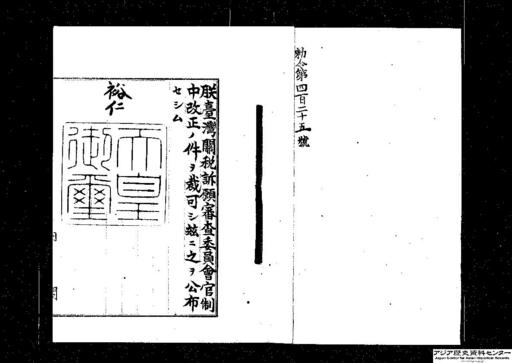 勅令第四百二十五號
朕臺灣關税訴願審査委員會官制
中改正ノ件ヲ裁可シ茲ニ之ヲ公布
セシム
裕仁
天皇
御璽
内閣
アジア歴史資料センター
Japan Center for Asian Historical Records